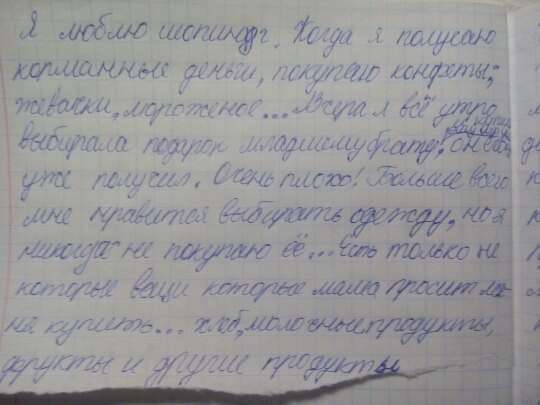 Я люблю шопинг. Когда я получаю
карманные деньги, покупаю конфеты,
жевачки, мороженое... Вчера я всё утро
выбирала подарок младшему брату, он его
уже получил. Очень плохо! Больше всего
мне нравится выбирать одежду, но я
никогда не покупаю её... Есть только не
которые вещи которые мама просит ме
ня купить... хлеб, молочные продукты,
фрукты и другие продукты